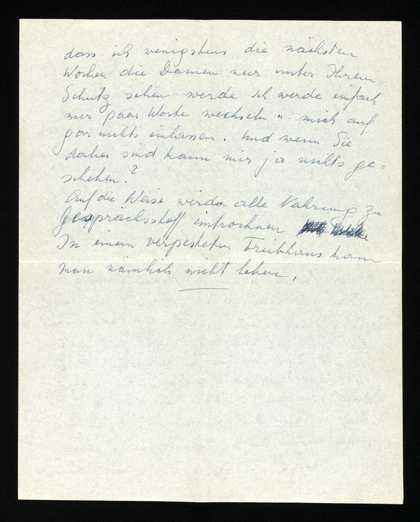 dass ich wenigstens die nächsten
Wochen die Damen nur unter Ihrem
Schutz sehen werde. Ich werde einfach
nur paar Worte wechseln u. mich auf
gar nichts einlassen. Und wenn Sie
dabei sind kann mir ja nichts ge-
schehen?
Auf die Weise wird alle Nahrung zu
Gesprächsstoff eintrocknen
In einem verpesteten Treibhaus kann
man nämlich nicht leben.